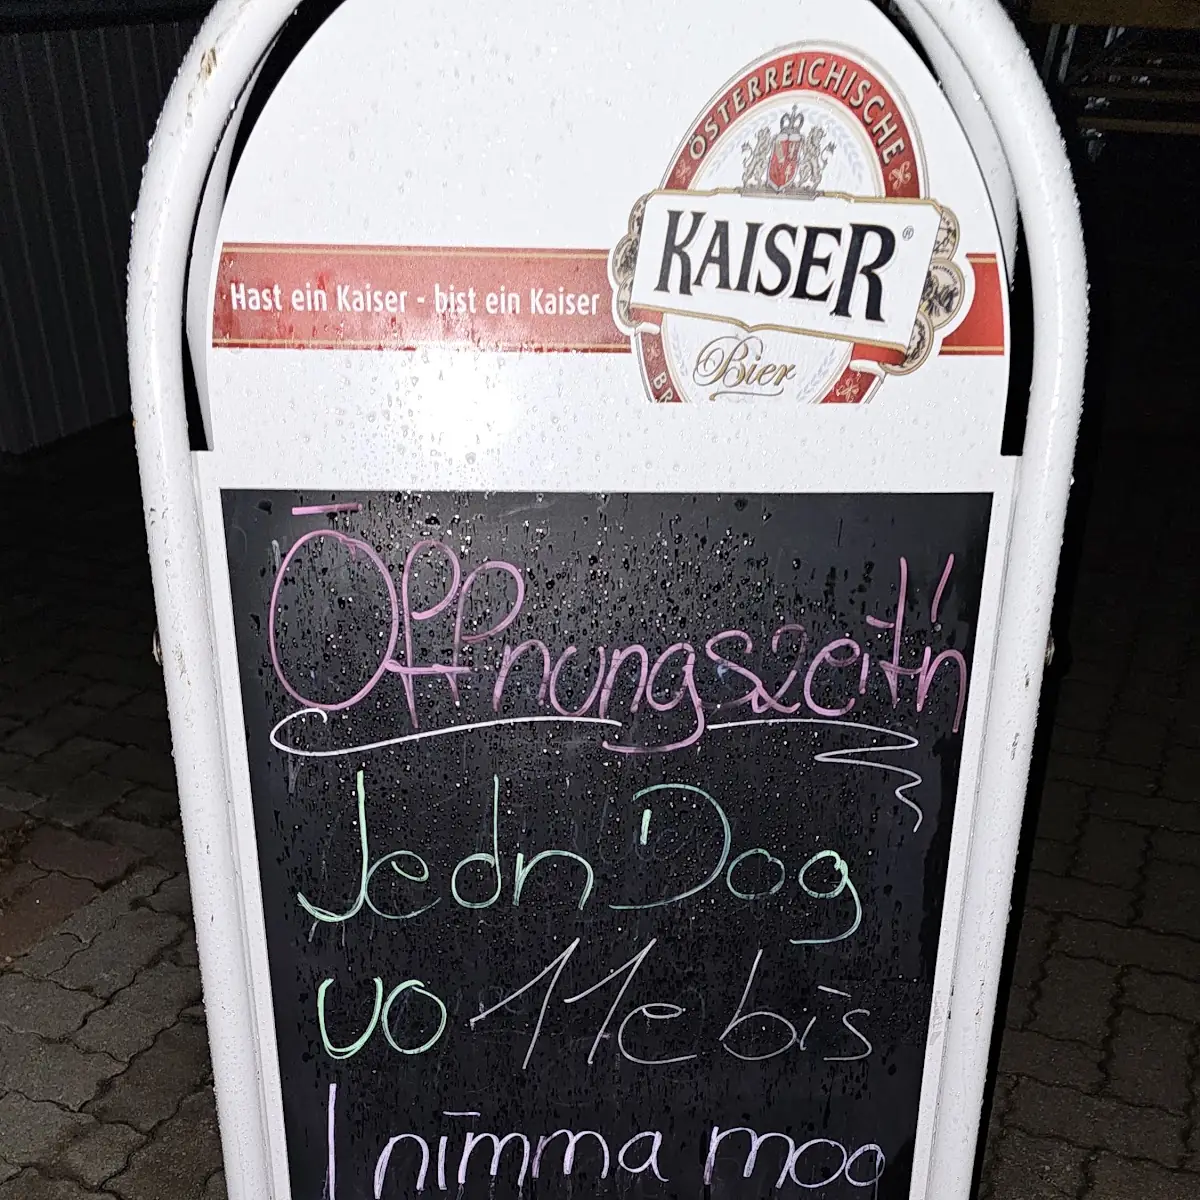 ÖSTERREICHISCHE
KAISER®
Bier
Hast ein Kaiser - bist ein Kaiser
Öffnungszeit'n
Jedn Dog
vo 11e bis
I nimma mog